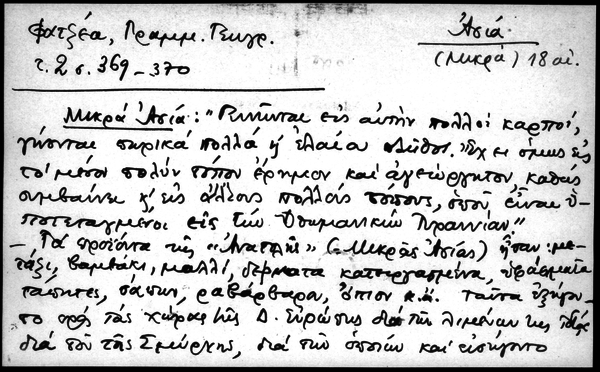 Φατζέα, Γραμμ. Γεωγρ.
τ. 2 σ. 369-370
Ἀσιά
(Μικρά) 18 αἰ.
Μικρά Ἀσιά: "Γεννῶνται εἰς αὐτήν πολλοί καρποί,
γίνονται πολλά κ' ἐλαίου. Ἔχει ὅμως εἰς
τό μέσον πολύν τόπον ἔρημον καί ἀγεώργητον, καθώς
συμβαίνει κ' εἰς ἄλλους πολλούς τόπους, ὁποῦ εἶναι ὑ-
ποτεταγμένοι εἰς τήν Ὀθωμανικήν Τυραννίαν."
- Τά προϊόντα τῆς "Ἀνατολῆς" (= Μικρᾶς Ἀσίας) ἦσαν: με-
τάξι, βαμβάκι, μαλλί, δέρματα κατειργασμένα, ὑφάσματα
τάπητες, ραβάρβαρον, ὄπιον κ.ἄ. ταῦτα ἐξήγον-
το πρός τάς χώρας τῆς Δ. Εὐρώπης διά τῶν λιμένων της ἰδίως
διά τοῦ τῆς Σμύρνης, διά τῶν ὁποίων καί εἰσήγοντο